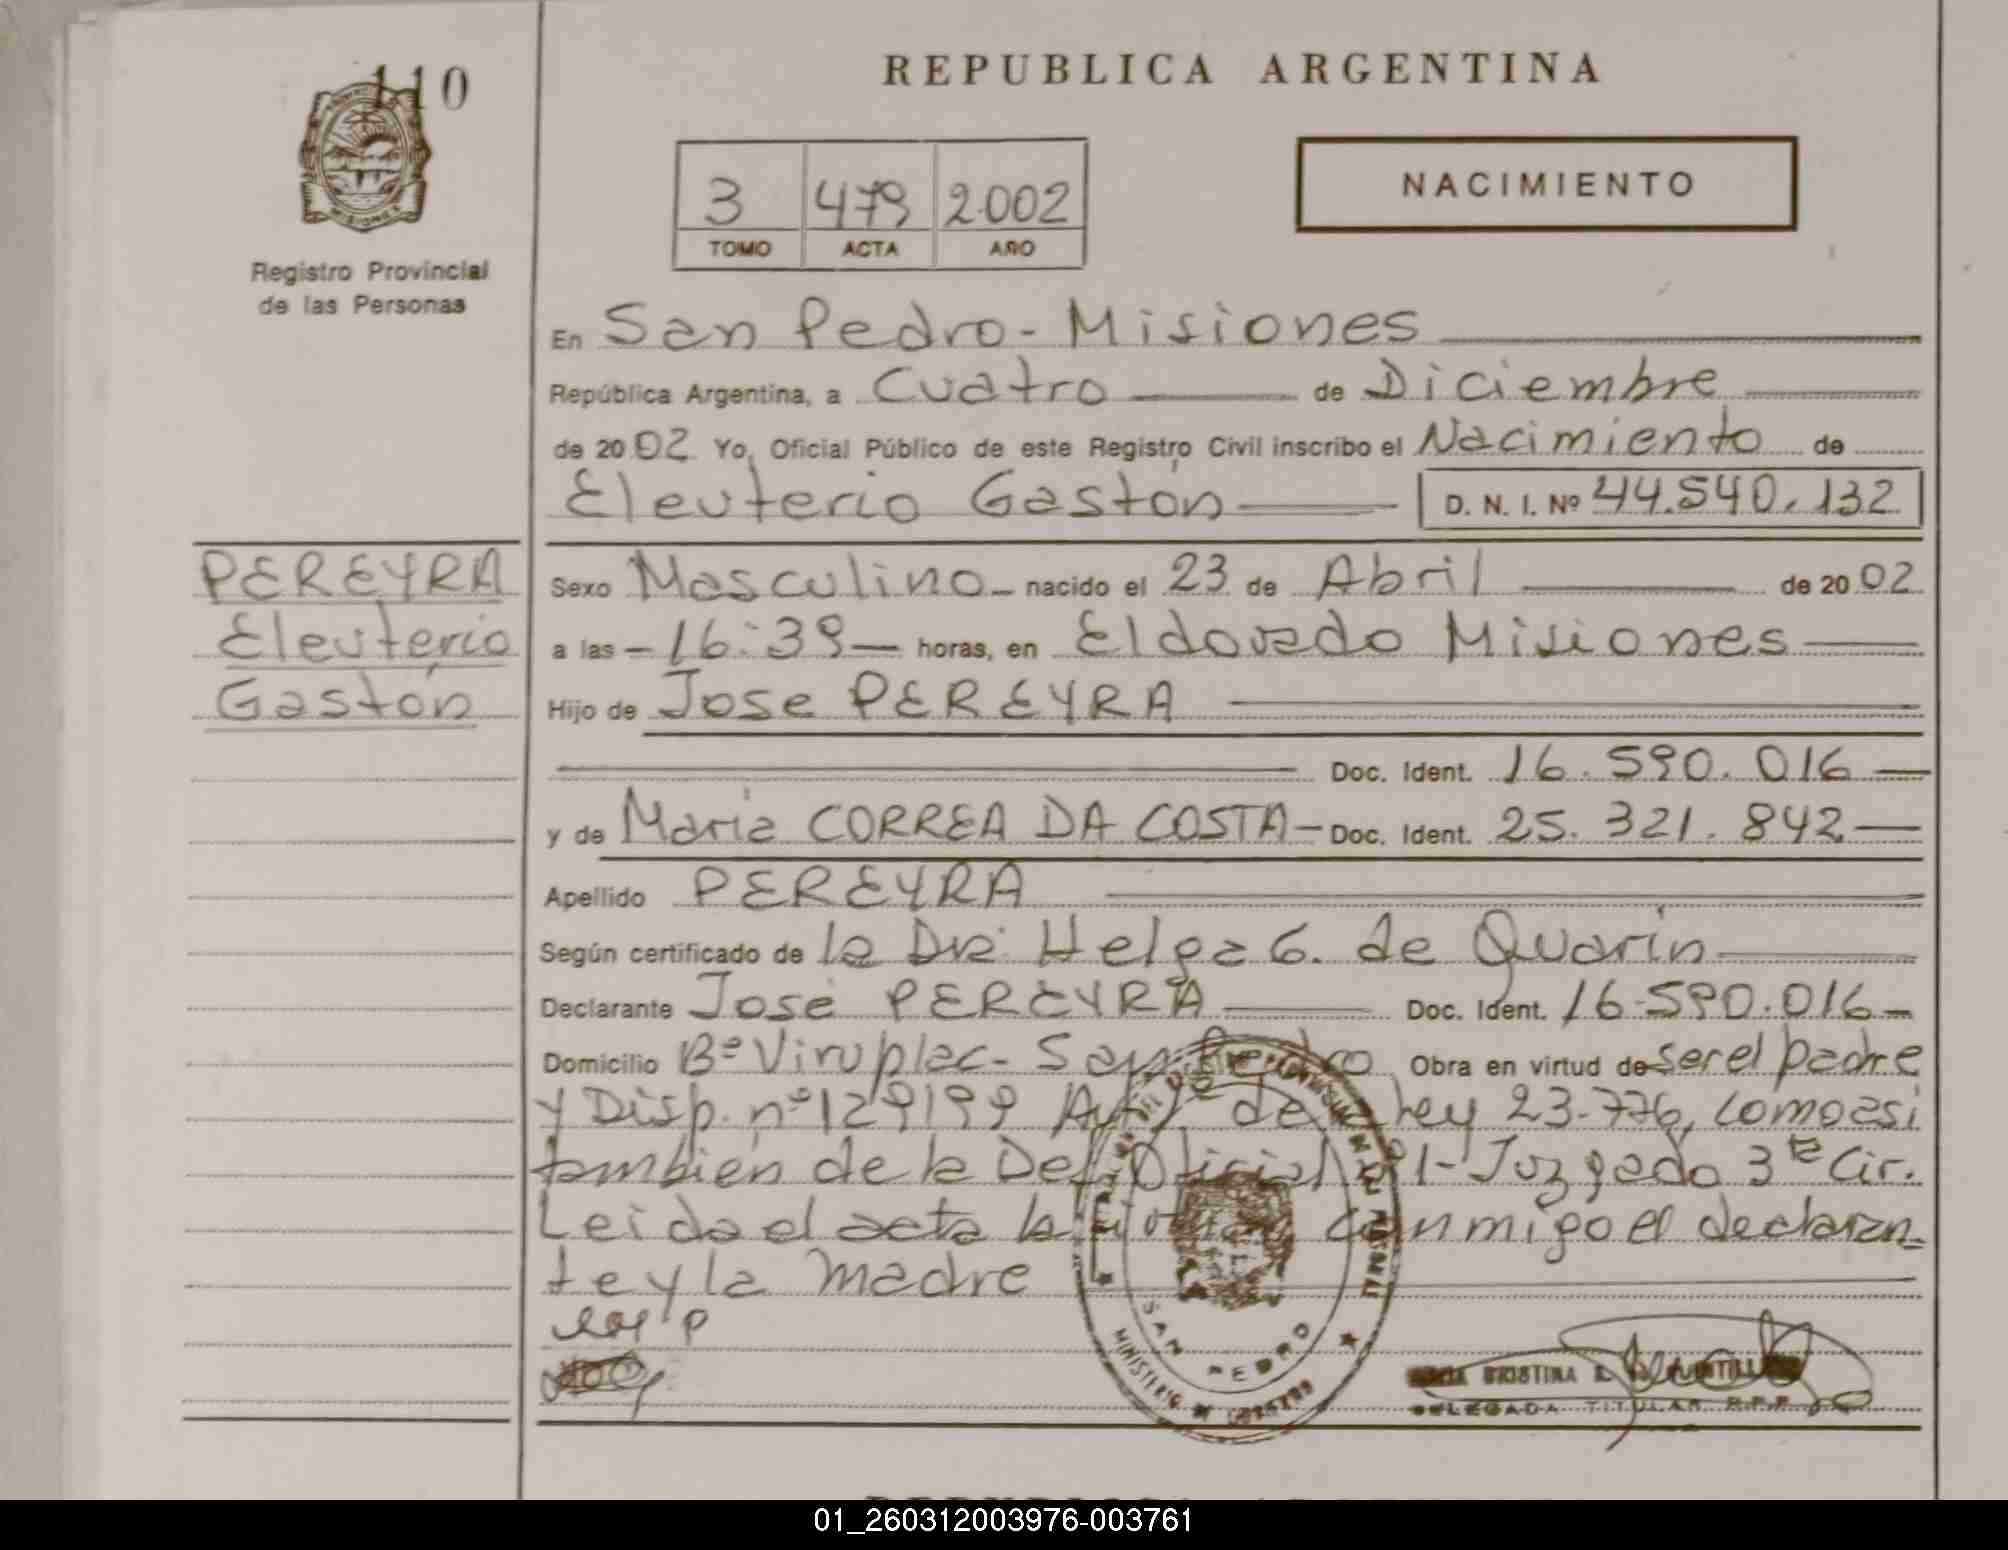 110
Registro Provincial
de las Personas
REPUBLICA ARGENTINA
3 479 2.002
TOMO ACTA AÑO
NACIMIENTO
En San Pedro - Misiones
República Argentina, a Cuatro de Diciembre
de 2002 Yo, Oficial Público de este Registro Civil inscribo el Nacimiento de
Eleuterio Gastón D. N. I. Nº 44.540.132
PEREYRA
Eleuterio
Gastón
Sexo Masculino nacido el 23 de Abril de 2002
a las 16:39 horas, en Eldorado Misiones
Hijo de Jose PEREYRA
Doc. Ident. 16.590.016
y de Maria CORREA DA COSTA Doc. Ident. 25.321.842
Apellido PEREYRA
Según certificado de la Dra Helga G. de Quarin
Declarante José PEREYRA Doc. Ident. 16.590.016
Domicilio Bº Viruplac - San Pedro Obra en virtud de ser el padre
y Disp. nº 129199 de Ley 23.776, como asi
tambien de la Def. Oficial nº 1- Juzgado 3ra Cir.
Leida el acta la firman conmigo el declaran-
te y la madre
SAN PEDRO
MINISTERIO DE GOBIERNO
DELEGADA TITULAR R.P.P.
01_260312003976-003761